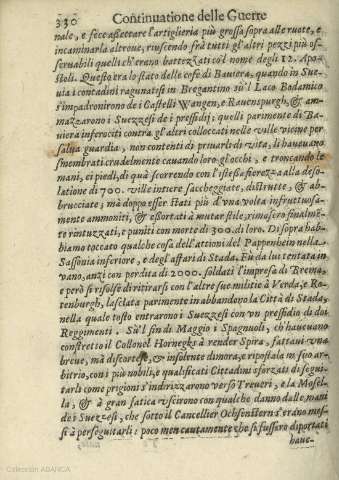 330 Continuatione delle Guerre
nale, e fece assettare l'artiglieria più grossa sopra alle ruote, e
incaminarla altroue, riuscendo frà tutti gl'altri pezzi più os-
seruabili quelli ch'erano battezzati co'l nome degl'12. Apo-
stoli. Questo era lo stato delle cose di Bauiera, quando in Sue-
uia i contadini ragunatisi in Bregantino sù'l Laco Bodamico
s'impadronirono de i Castelli Wangem, e Rauenspurgh, & am-
mazzarono i Suezzesi de i presidij; quelli parimente di Ba-
uiera inferociti contra gl'altri collocati nelle ville vicine per
salua guardia, non contenti di priuarli di vita, li haueuano
smembrati crudelmente cauando loro gl'occhi, e troncando le
mani, ei piedi, di quà scorrendo con l'istessa fierezza alla deso-
latione di 700. ville intiere saccheggiate, distrutte, & ab-
brucciate; mà doppo esser stati più d'vna volta infruttuosa-
mente ammoniti, & essortati à mutar stile, rimasero finalmen-
te rintuzzati, e puniti con morte di 300. di loro. Di sopra hab-
biamo toccato qualche cosa dell'attioni del Pappenheim nella
Sassonia inferiore, e degl'affari di Stada. Fù da lui tentata in
vano, anzi con perdita di 2000. soldati l'impresa di Brema,
e però si risolse di ritirarsi con l'altre sue militie à Verda, e Ro-
tenburgh, lasciata parimente in abbandono la Città di Stada,
nella quale tosto entrarono i Suezzesi con vn presidio di doi
Reggimenti. Sù'l fin di Maggio i Spagnuoli, c'haueuano
constretto il Collonel Hornegks à render Spira, fattaui vna
breue, mà discortese, & insolente dimora, e ripostala in suo ar-
bitrio, con i più nobili, e qualificati Cittadini sforzati di segui-
tarli come prigioni s'indrizzarono verso Treueri, e la Mosel-
la, & à gran fatica vscirono con qualche danno dalle mani
de i Suezzesi, che sotto il Cancellier Ochsenstern s'erano mes-
si à perseguitarli: e poco men cautamente che si fussero diportati
haue-
Colección ABANCA